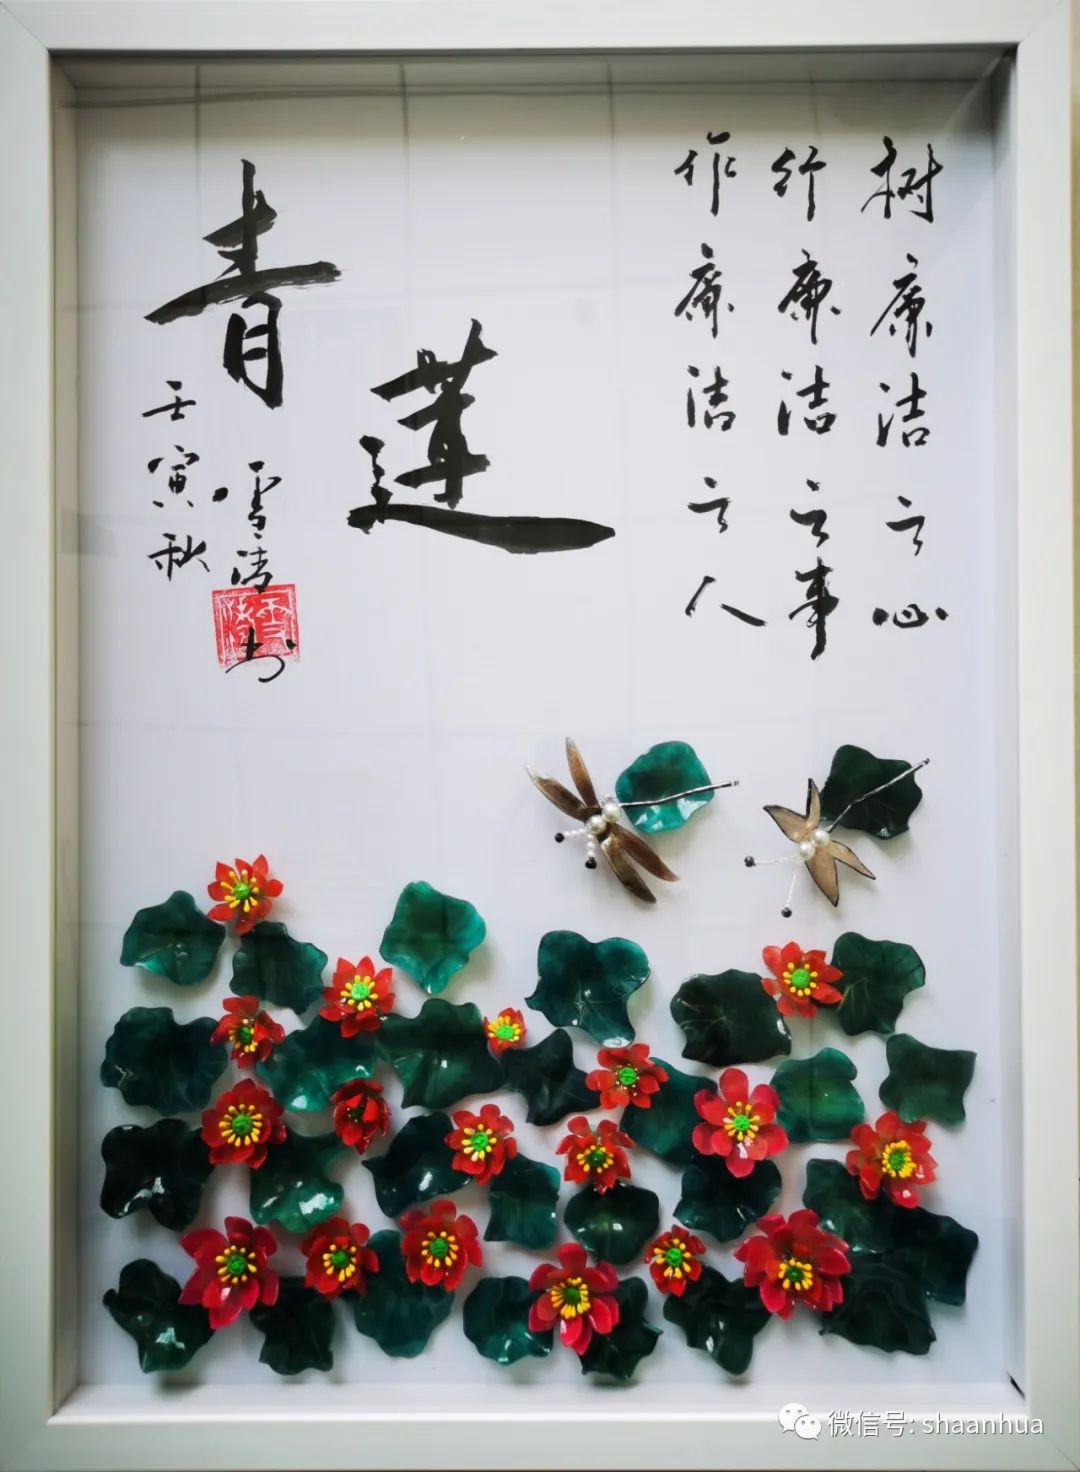 树廉洁之心
行廉洁之事
作廉洁之人
青莲
壬寅秋
雪洁书
微信号: shaanhua